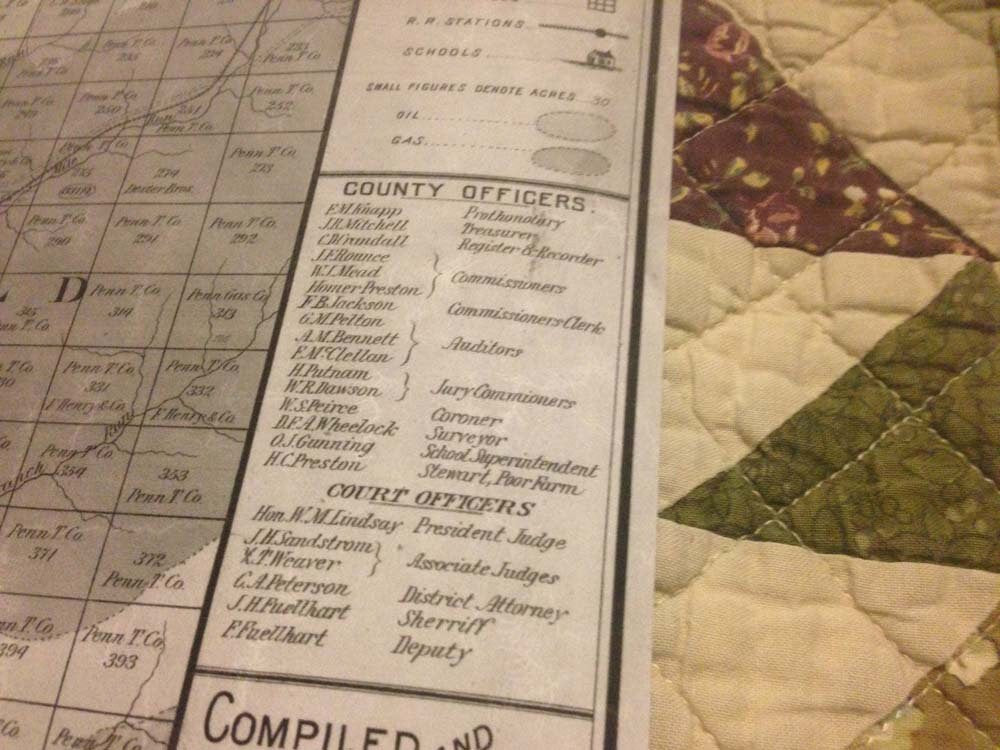 R.R. STATIONS
SCHOOLS
SMALL FIGURES DENOTE ACRES 50
OIL
GAS
COUNTY OFFICERS
F.M. Knapp Prothonotary
J.R. Mitchell Treasurer
C.D. Crandall Register & Recorder
J.F. Rounce
W.J. Mead Commissioners
Homer Preston
F.B. Jackson Commissioners Clerk
G.M. Pelton
A.M. Bennett Auditors
F. McClellan
H. Putnam
W.R. Dawson Jury Commioners
W.S. Peirce Coroner
D.F.A. Wheelock Surveyor
O.J. Gunning School Superintendent
H.C. Preston Stewart, Poor Farm
COURT OFFICERS
Hon. W.M. Lindsay President Judge
J.H. Sandstrom
X.T. Weaver Associate Judges
C.A. Peterson District Attorney
J.H. Fuellhart Sherriff
F. Fuellhart Deputy
COMPILED AND
Penn T Co.
252
Penn T Co.
Penn T Co.
273
274
Dexter Bros.
Penn T Co.
290
Penn T Co.
291
Penn T Co.
292
L D
Penn T Co.
314
Penn Gas Co.
313
Penn T Co.
331
F Henry & Co
Penn T Co.
332
F Henry & Co
Run
Penn T Co.
354
353
Penn T Co.
Penn T Co.
371
372
Penn T Co.
Penn T Co.
394
Penn T Co.
393